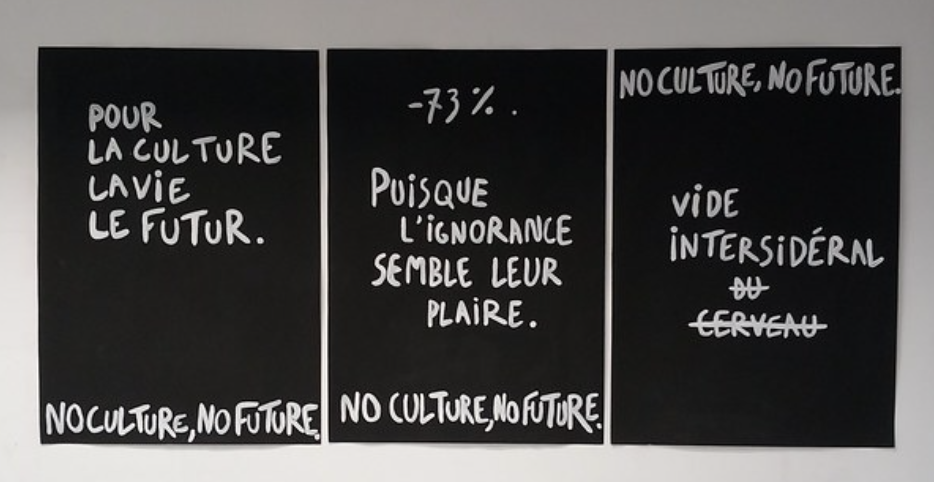 POUR
LA CULTURE
LA VIE
LE FUTUR.
NO CULTURE, NO FUTURE.
-73%.
PUISQUE
L'IGNORANCE
SEMBLE LEUR
PLAIRE.
NO CULTURE, NO FUTURE.
NO CULTURE, NO FUTURE.
VIDE
INTERSIDÉRAL
DU
CERVEAU